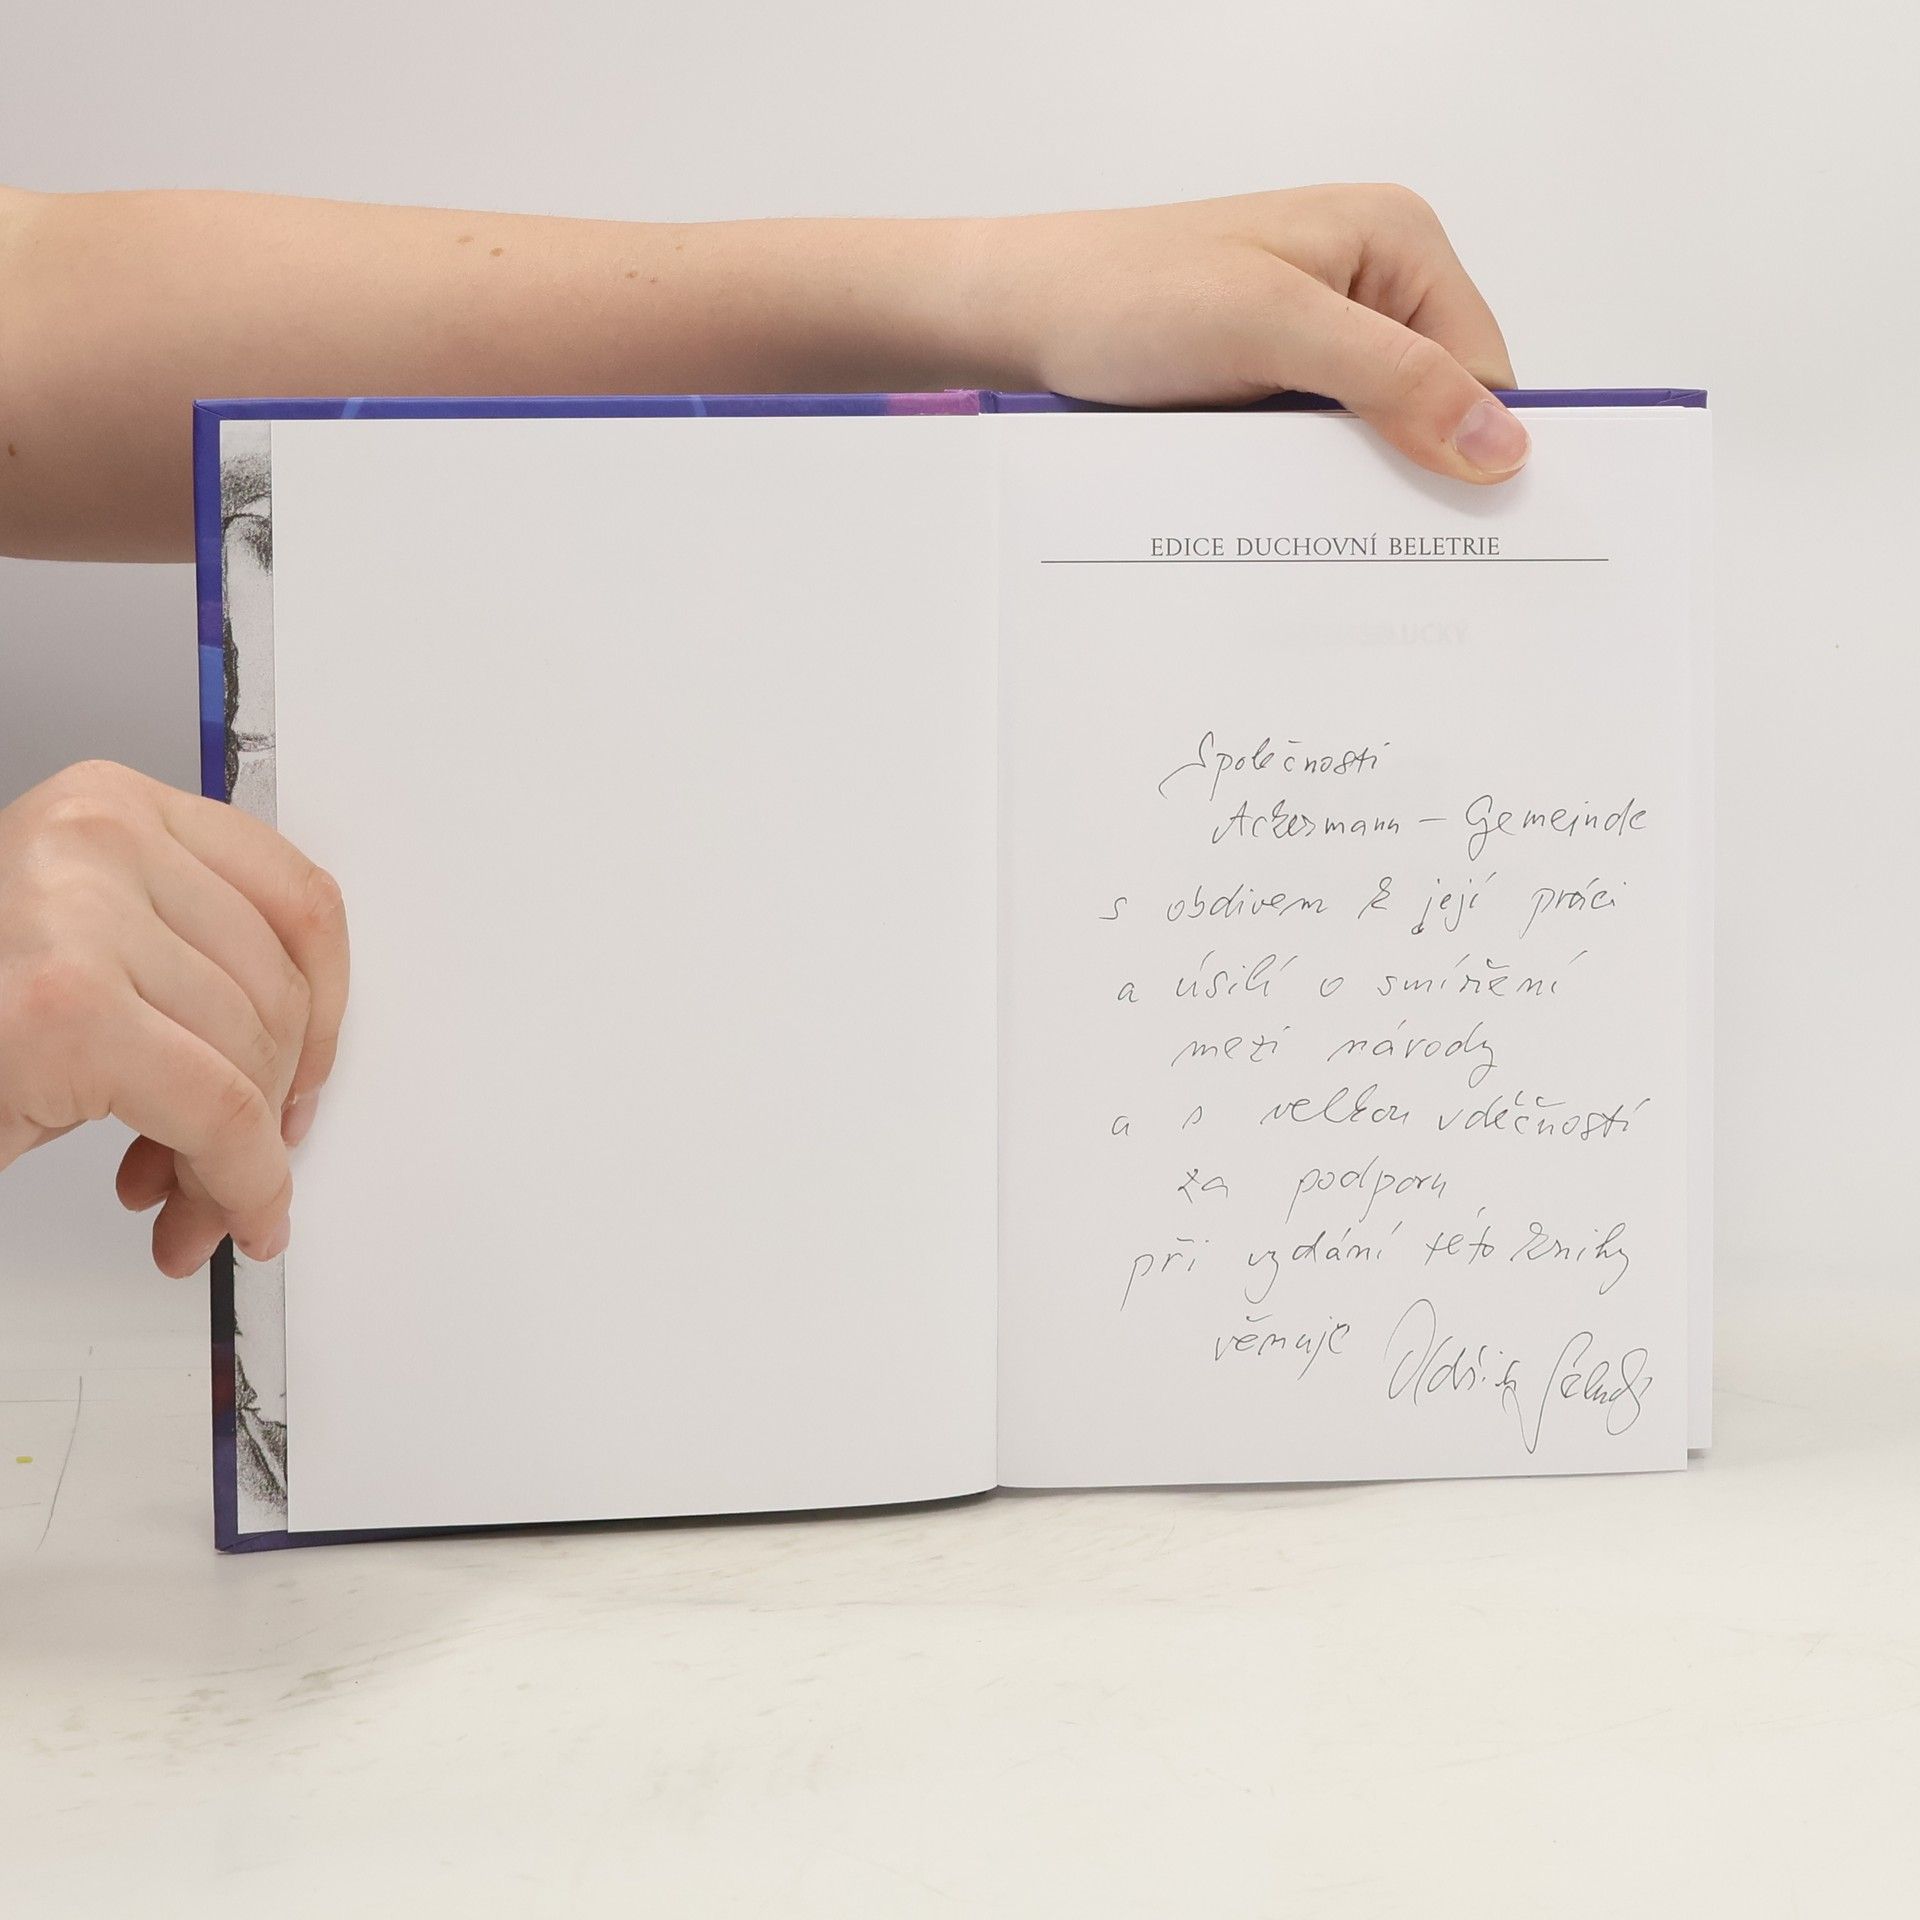 EDICE DUCHOVNÍ BELETRIE
Společnosti
Ackermann – Gemeinde
s obdivem k její práci
a úsilí o smíření
mezi národy
a s velkou vděčností
za podporu
při vydání této knihy
věnuje Oldřich